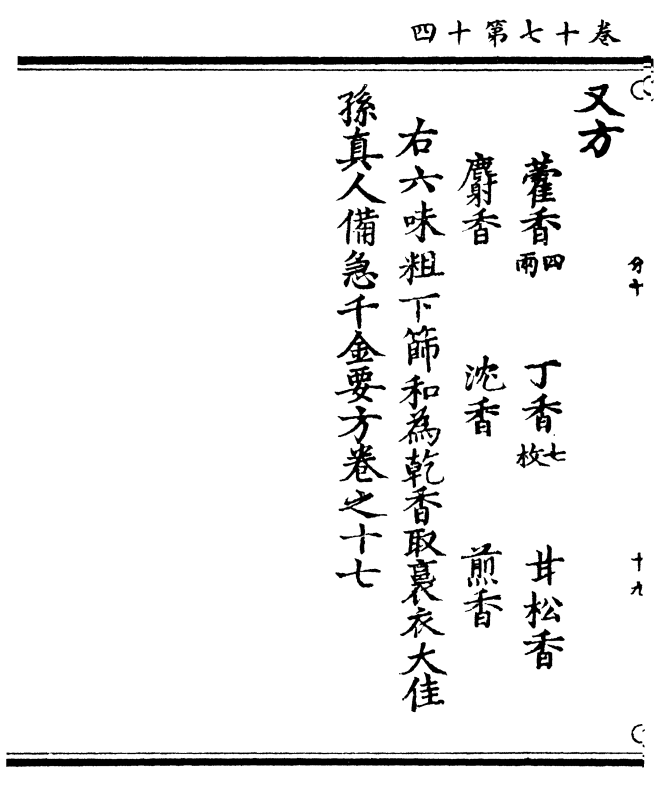 卷十七第十四
又方
藿香四兩 丁香七枚 甘松香
麝香 沈香 煎香
右六味粗下篩和為乾香取裛衣大佳
孫真人備急千金要方卷之十七
分十
十九